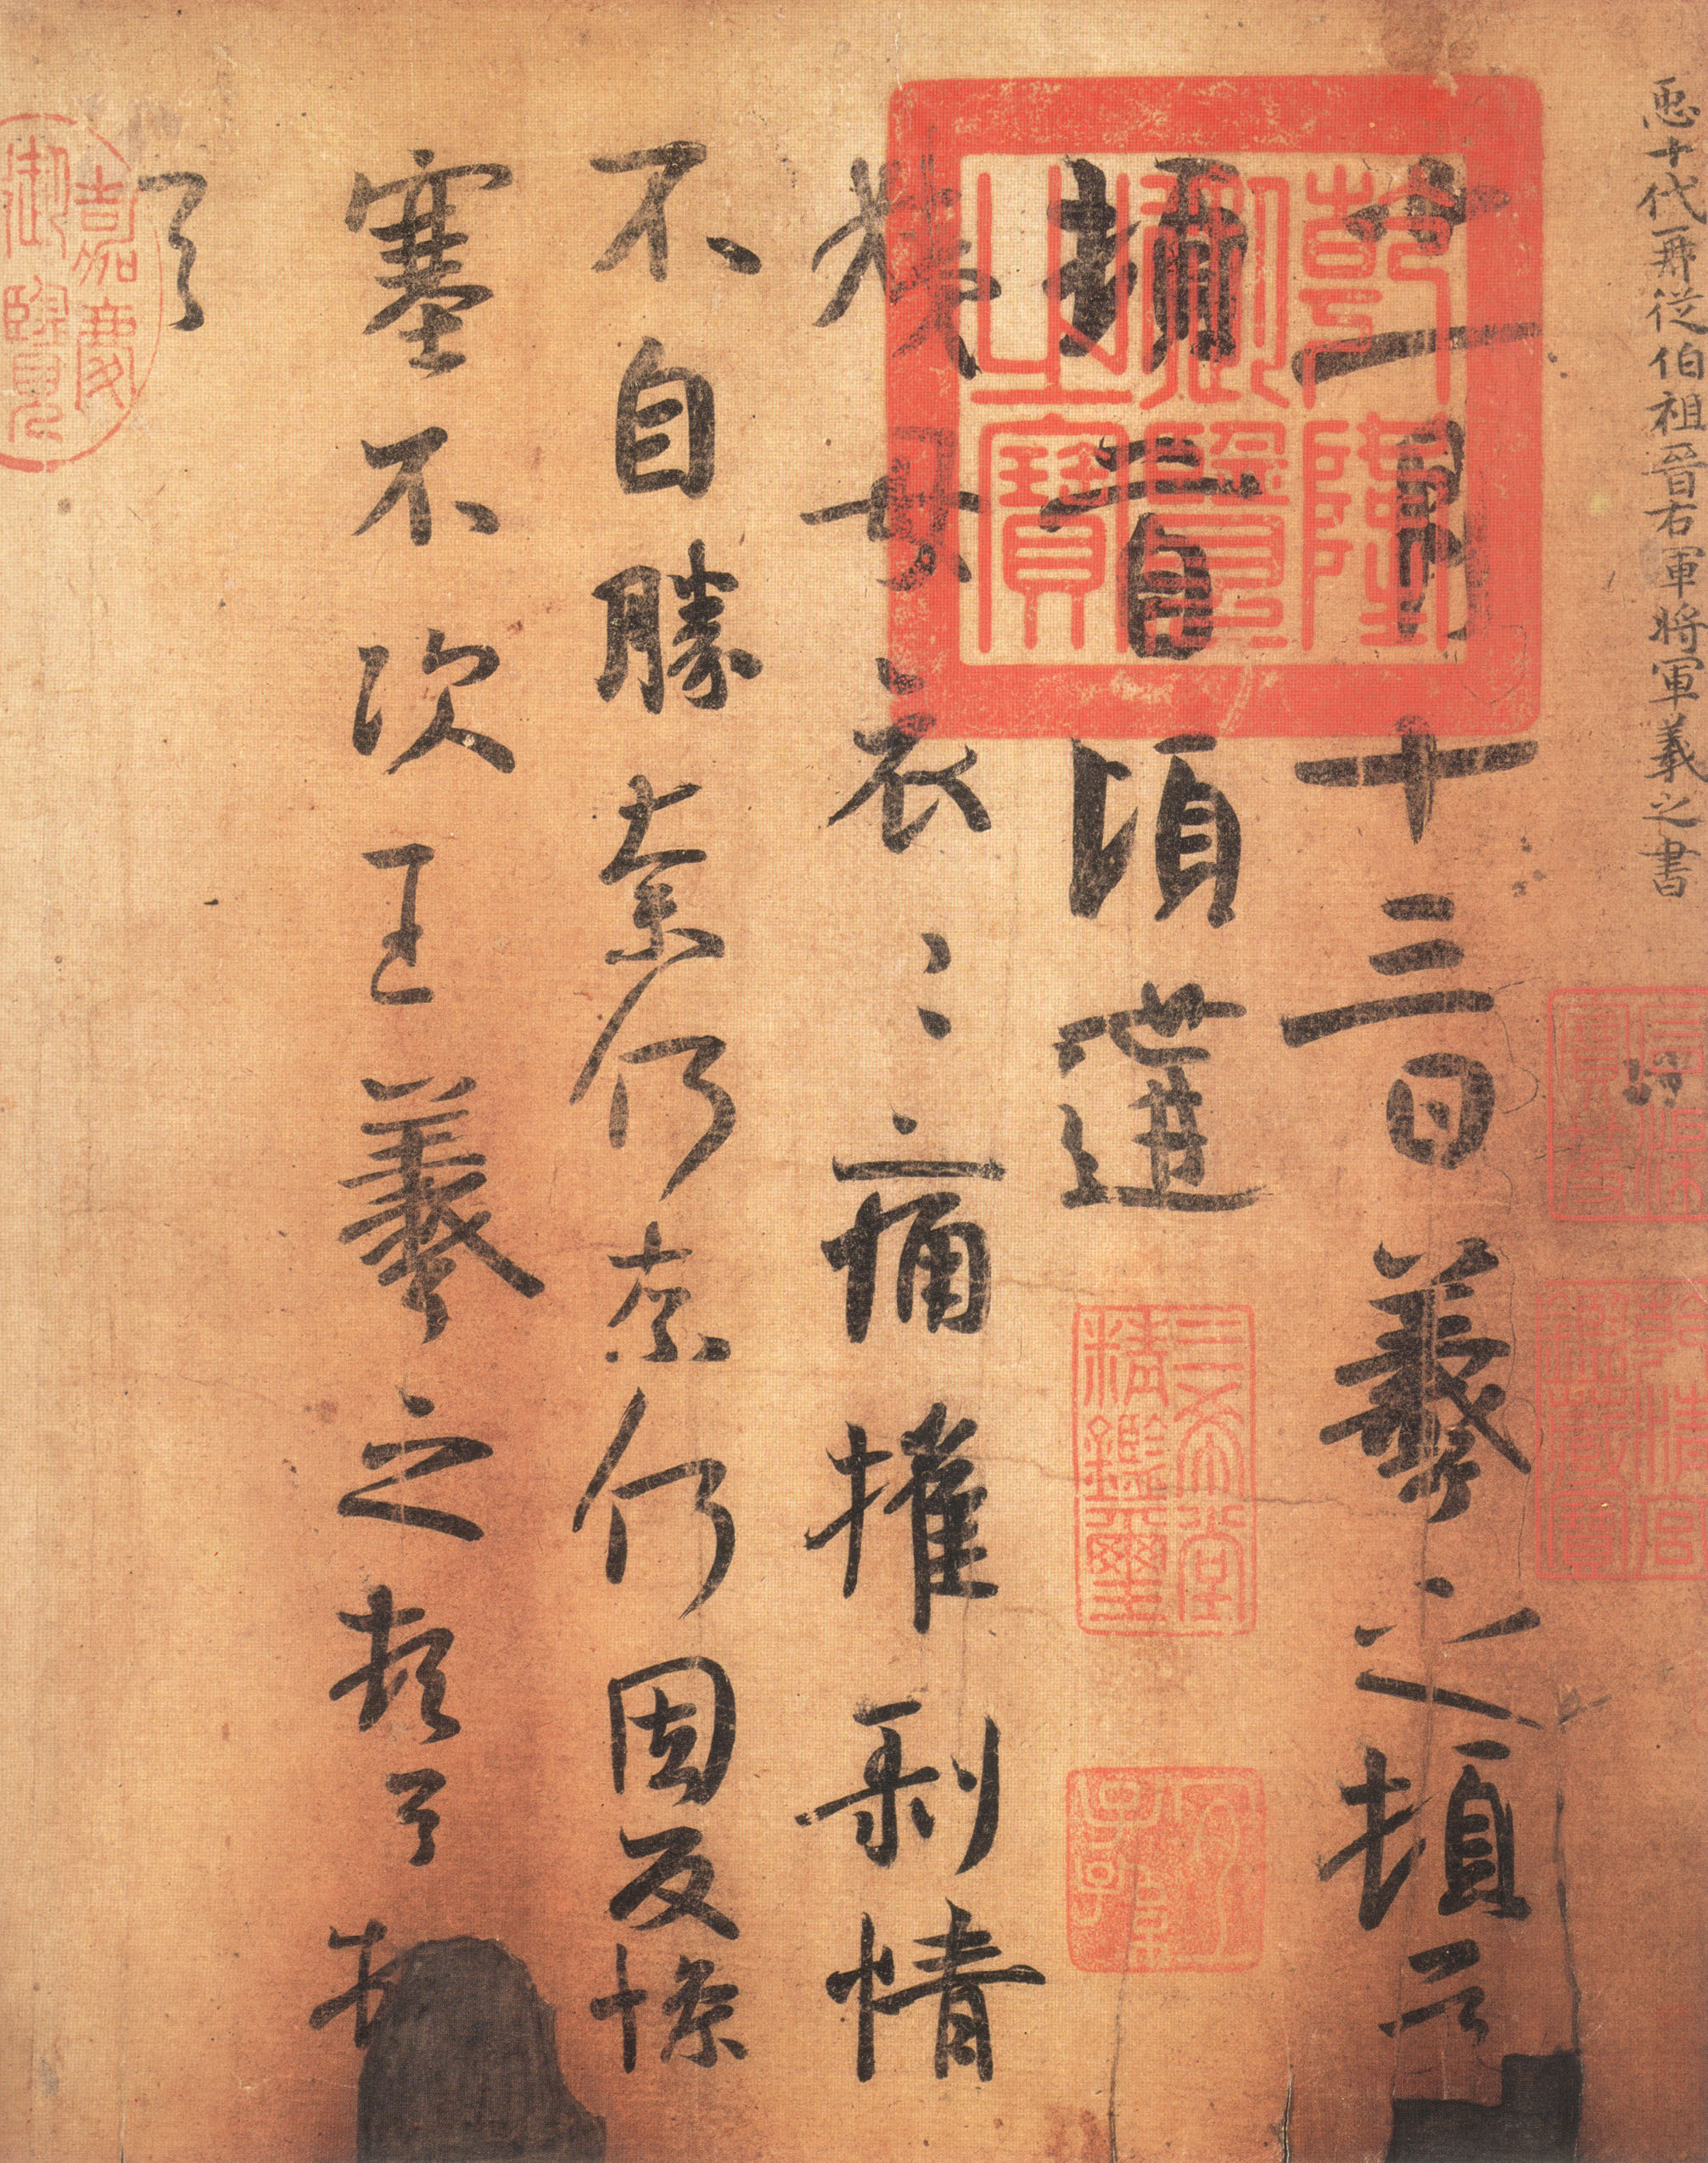 𢘑十代再從伯祖晉右軍將軍羲之書
石渠寶笈
乾清宮鑑藏寶
十一月十三日羲之頓首
乾隆御覽之寶
頓首頃遘
三希堂精鑑璽
宜子孫
姨母哀〻痛摧剥情
不自勝奈何奈何因反慘
塞不次王羲之頓首頓
首
嘉慶御覽